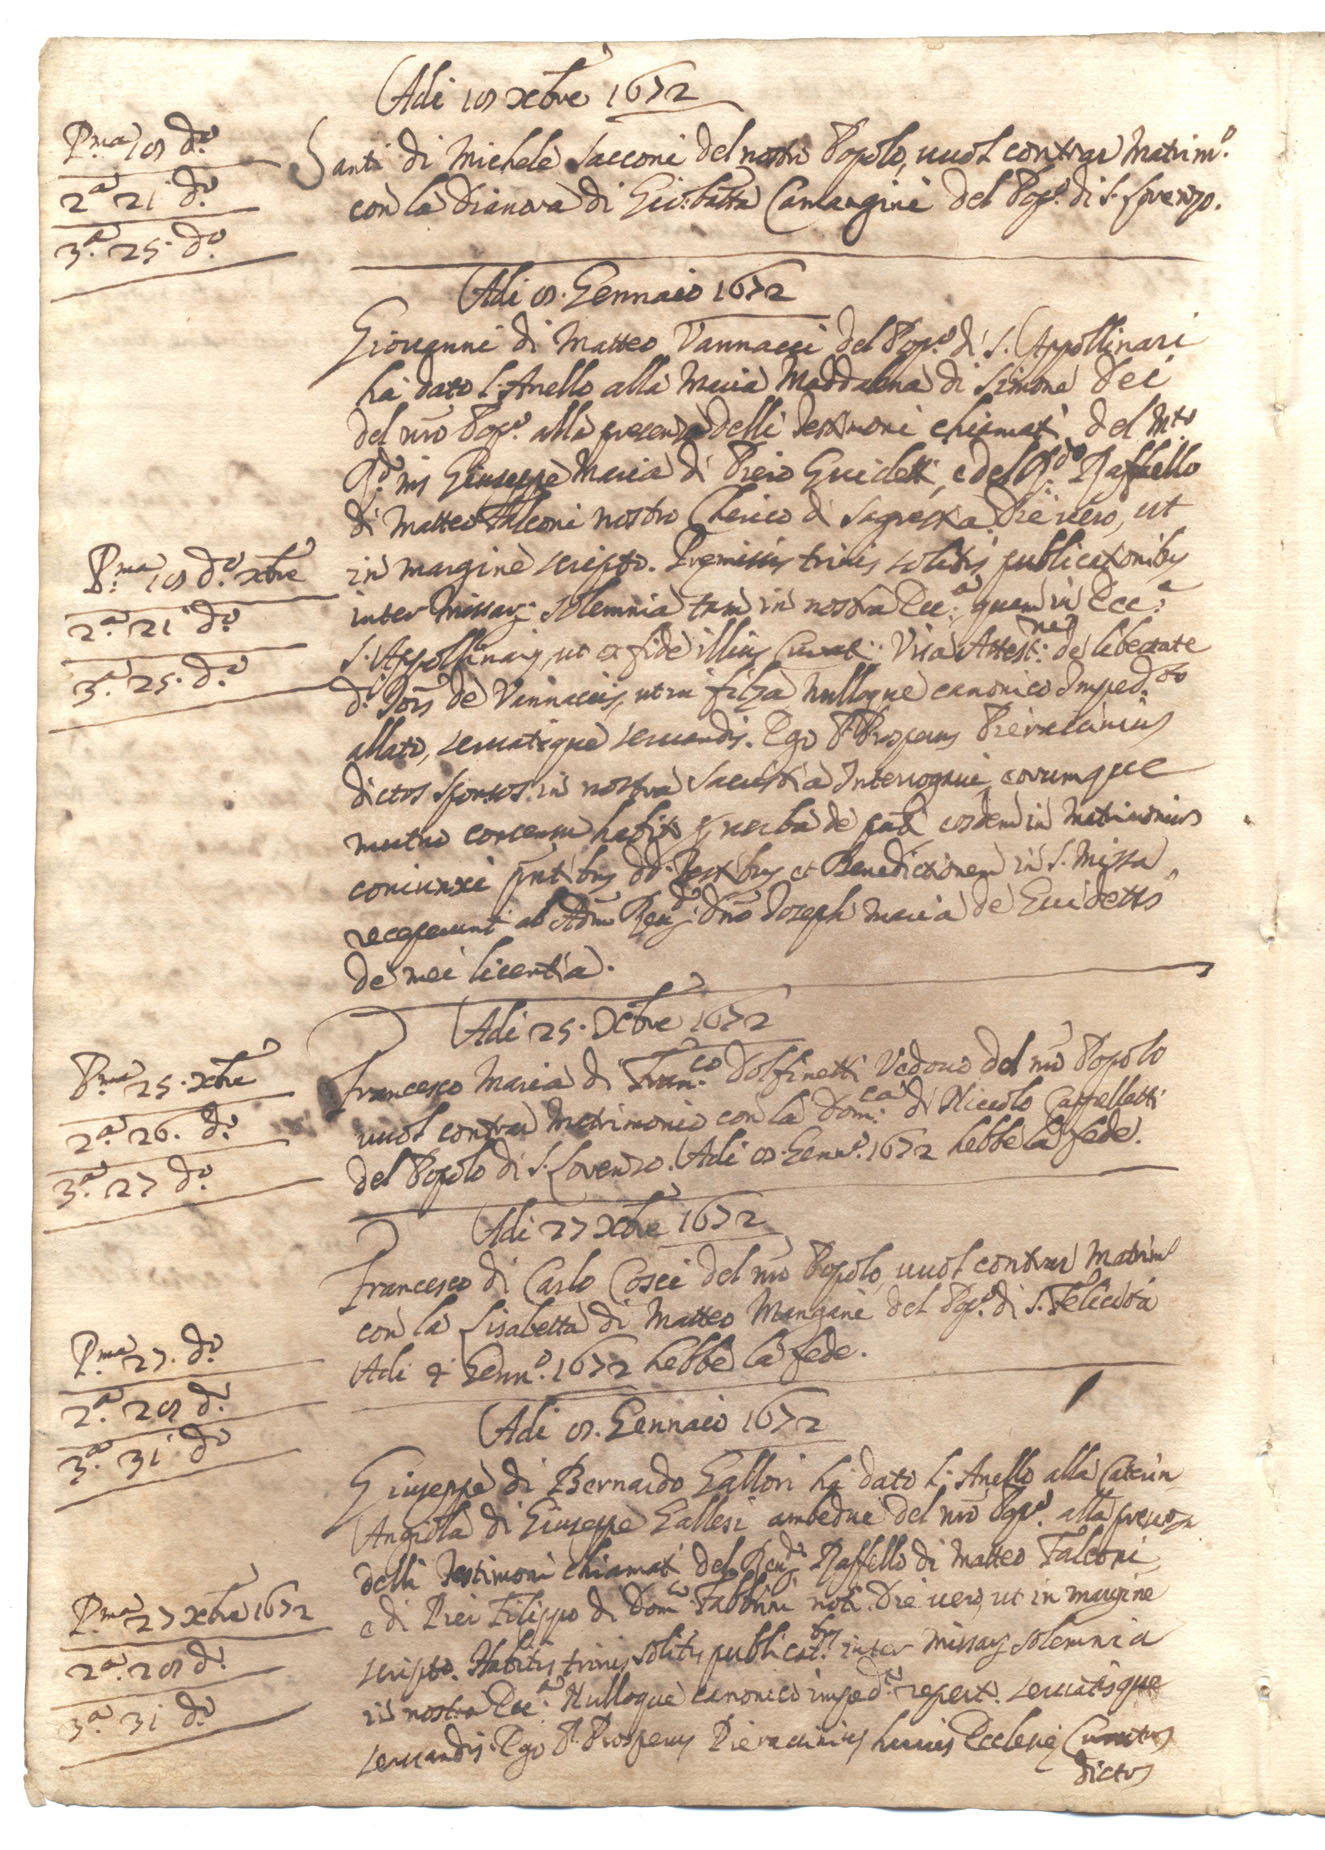 Adi 18 Xbre 1672
P.ma 18 d.o
2.a 21 d.o
3.a 25. d.o
Santi di Michele Sacconi del nostro Popolo, vuol contrar Matrim.o
con la Dianora di Gio:batta Camangini del Pop.o di S. Lorenzo.
Adi 8. Gennaio 1672
Giovanni di Matteo Vannacci del Pop.o di S. Appollinari
ha dato l'Anello alla Maria Maddalena di Simone Dei
del nro Pop.o alla presenza delli Testimoni chiamati del M.to
R.do Giuseppe Maria di Piero Guidetti, e del R.do Raffaello
di Matteo Falconi nostro Cherico di Sagrestia Die vero, ut
P.ma 18 d.o Xbre
2.a 21 d.o
3.a 25. d.o
in margine scripto. Premissis trinis solitis publicationibus
inter Missar: solemnia tam in nostra Ecc.a quam in Ecc.a
S. Appollinaris, ut ex fide illius Curat: Visa Attest:ne de libertate
d.i Jois de Vannaccis, ut in filza Nulloque canonico Imped.to
allato, servatisque servandis. Ego P. Prosperus Pieraccinius
dictos sponsos in nostra sacristia Interrogavi, eorumque
mutuo consensu habito p verba de pnti eosdem in Matrimonium
coniunxi pntibus dd. Testibus et Benedictionem in S. Missa
receperunt ab Adm Rev.do dno Joseph Maria de Guidettis
de mei licentia.
Adi 25. Xbre 1672
P.ma 25. Xbre
2.a 26. d.o
3.a 27 d.o
Francesco Maria di Fran.co Dolfinetti Vedovo del nro Popolo
vuol contrar Matrimonio con la Dom.ca di Niccolo Cappelletti
del Popolo di S. Lorenzo. Adi 8 Genn.o 1672 hebbe la fede.
Adi 27 Xbre 1672
Francesco di Carlo Cosci del nro Popolo, vuol contrar Matrim.o
con la Lisabetta di Matteo Mangani del Pop.o di S. Felicita
Adi Genn.o 1672 hebbe la fede.
P.ma 27. d.o
2.a 28 d.o
3.a 31 d.o
Adi 8. Gennaio 1672
Giuseppe di Bernardo Gallori ha dato l'Anello alla Caterin
Angiola di Giuseppe Gallesi ambedue del nro Pop.o alla presenza
delli Testimoni chiamati del Rev.do Raffello di Matteo Falconi
e di Pier Filippo di Dom.co Fabbrini noti Die vero, ut in margine
P.ma 27 Xbre 1672
2.a 28 d.o
3.a 31 d.o
scripto. Habitis trinis solitis publicat.bus inter missar solemnia
in nostra Ecc.a Nulloque canonico imped.o repert. servatisque
servandis. Ego P. Prosperus Pieraccinius huius Ecclesie Curatus
dictos